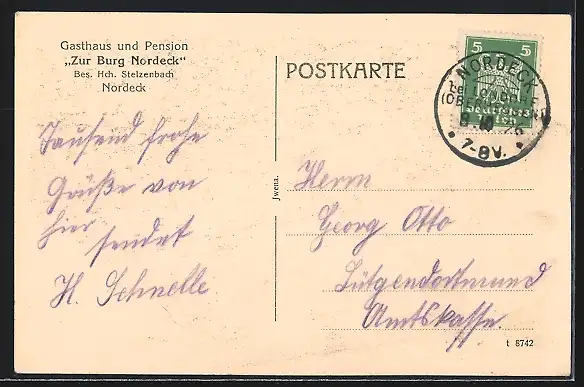 Gasthaus und Pension
„Zur Burg Nordeck“
Bes. Hch. Stelzenbach
Nordeck
Tausend frohe
Grüße von
hier sendet
H. Schnelle
Jwena.
POSTKARTE
5 5
Deutsches
Reich
NORDECK
7-8V.
Herrn
Georg Otto
Lütgendortmund
Amtskasse.
t 8742